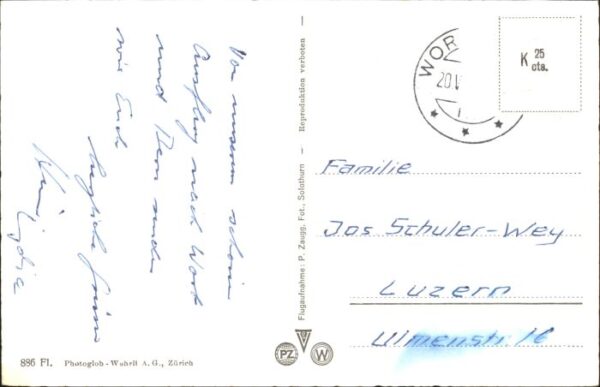 Von unserem schönen
Ausflug nach Worb
und Bern senden
wir Euch
herzliche Grüsse
Lydia
896 Fl. Photoglob-Wehrli A. G., Zürich
Flugaufnahme: P. Zaugg, Fot., Solothurn — Reproduktion verboten —
PZ
W
WOR
20.
K 25
cts.
Familie
Jos Schuler-Wey
Luzern
Ulmenstr. 16